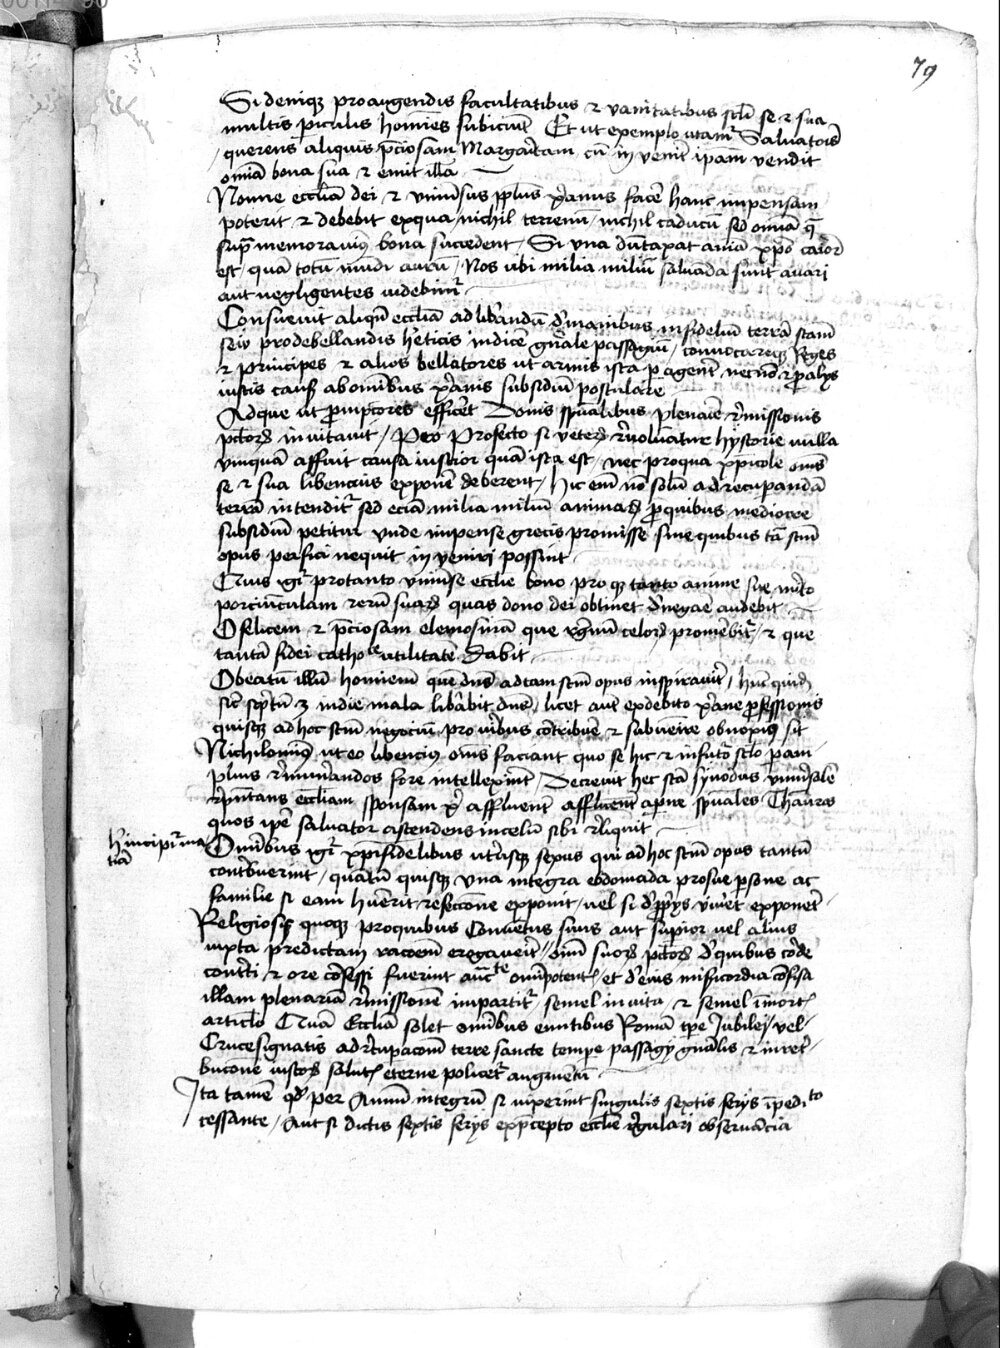 79
Si deniqz pro augendis facultatibus et vanitatibus scli se et sua
multis piculis homies subiciut Et ut exemplo utamr Saluatoris
querens aliquis pciosam Margaritam cu in venit ipam vendit
omia bona sua et emit illa
Nonne ecclia dei et vniusus pplus xpianus face hanc impensam
poterit et debebit ex qua nichil terrenu nichil caducu sed omia q
supra memorauimus bona succedent Si vna dutaxat aia xpo carior
est qua totu mudi auru Nos vbi milia miliu saluada sunt auari
aut negligentes videbimr
Consueuit aliqn ecclia ad libandu de manibus infideliu terra scam
seu pro debellandis hereticis indice gnale passagiu conuocareqz Reges
et principes et alios bellatores ut armis ista pagent necno et palys
iustis causis ab omibus xpianis subsidiu postulare
Adque ut pmptiores efficet Donis spualibus plenarie remissionis
pctor inuitauit Pro Profecto si veteres reuoluantur hystorie nulla
vnquam affuit causa iustior quam ista est nec pro qua xpicole omes
se et sua libencius expone deberent hic em no solu ad recupanda
terra intenditr sed ecia milia miliu animar p quibus mediocre
subsidiu petitur vnde impense grecis promisse sine quibus ta scm
opus perfici nequit in veniri possint
Quis igr pro tanto vniuse ecclie bono pro qz tanto anime sue mito
porciunculam reru suar quas dono dei obtinet denegae audebit
O felicem et pciosam elemosinam que regnu celor promebitr et que
tanta fidei catholice utilitate dabit
O beatu illu homiem que dns ad tam scm opus inspirauit
sic sptu in die mala libabit dns licet aut ex debito xpiane pfessionis
quisqz ad hoc scm negociu pro viribus cotribue et subueire obnoxius sit
Nichilominus ut eo libencius omes faciant quo se hic et in futuro sclo
plius remuerandos fore intellexint Decreuit hec sca synodus vniusale
repntans eccliam sponsam xpi affluent affluent apire spuales Thauros
quos ipe saluator ascendens in celu sibi reliquit
hic incipit ma
tia
Omibus igr xpifidelibus utriusqz sexus qui ad hoc scm opus tantu
contibuerint quatu quisqz vna integra ebdomada pro sue psone ac
familie si eam huerit refeccione exponit vel si de pprys viuet exponet
Religiosis quoqz pro quibus Conuetus suus aut supior vel alius
iuxta predictam racoem erogauerit oim suor pctor de quibus corde
contiti et ore cofessi fuerint aucte omipotent et de eius misericordia cofisa
illam plenaria remissione impartitr semel in vita et semel in mort
articlo Qua Ecclia solet omibus euntibus Roma tpe Iubiley vel
Crucesignatis ad recupacom terre sancte tempe passagy gnalis et in retr
bucone iustor salut eterne pollicetr augmentu
Ita tamen qd per Annu integru si vixerint singulis sextis ferys impedito
cessante Aut si dictis sextis ferys ex pcepto ecclie regulari obseruancia